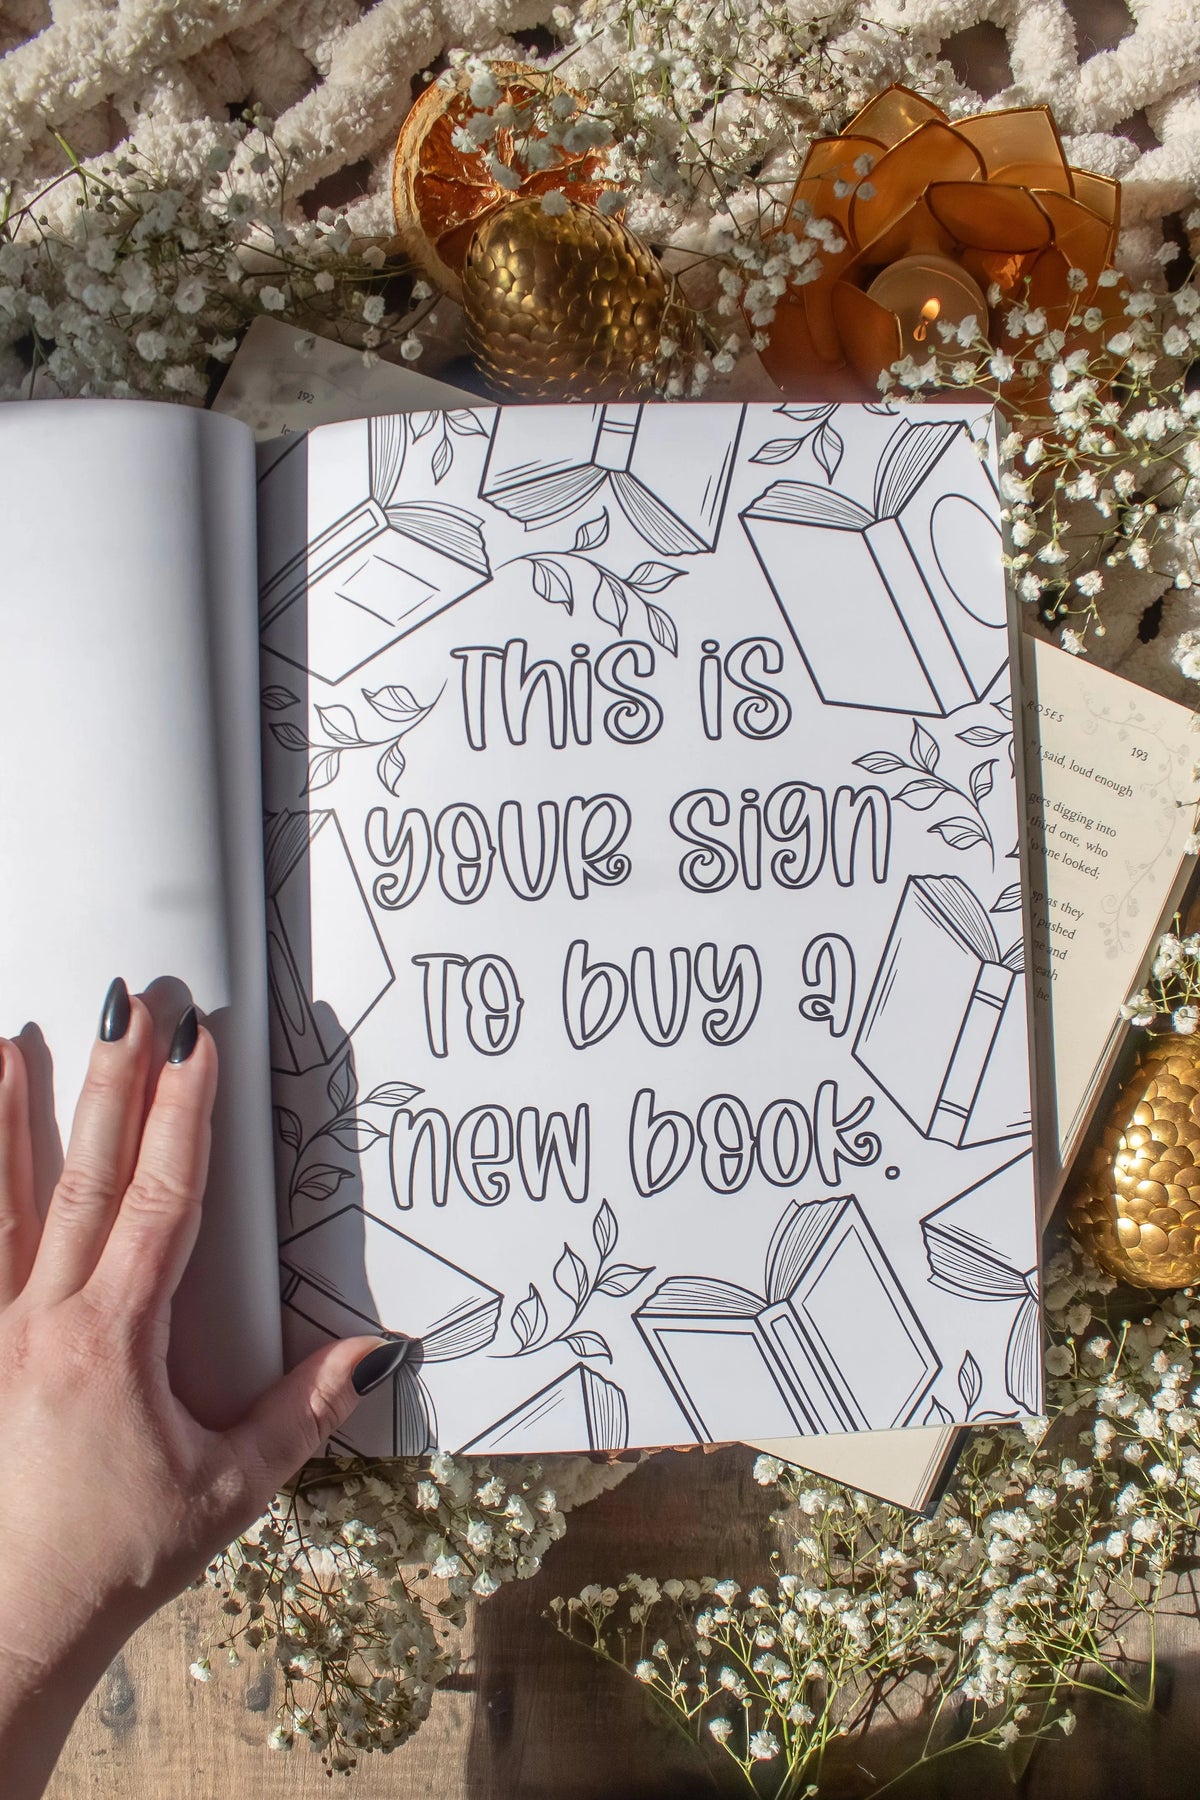 192
This is
your sign
to buy a
new book.
ROSES
193
"I said, loud enough
gers digging into
third one, who
o one looked;
sp as they
I pushed
me and
eath
he